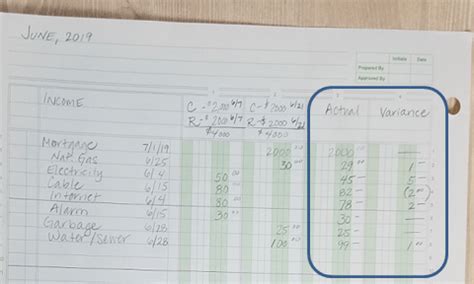 JUNE, 2019
Initials Date
Prepared By
Approved By
1 2 3 4
INCOME C - $2000 6/7 C - $2000 6/21 Actual Variance
R - $2000 6/7 R - $2000 6/21
$4000 $4000
Mortgage 7/1/19 2000 00 2000 —
Nat. Gas 6/25 30 00 29 00 1 —
Electricity 6/4 50 00 45 — 5 —
Cable 6/15 80 00 82 — (2 00)
Internet 6/4 80 00 78 — 2 —
Alarm 6/15 30 00 30 — —
Garbage 6/28 25 00 25 — —
Water/Sewer 6/28 100 00 99 — 1 00